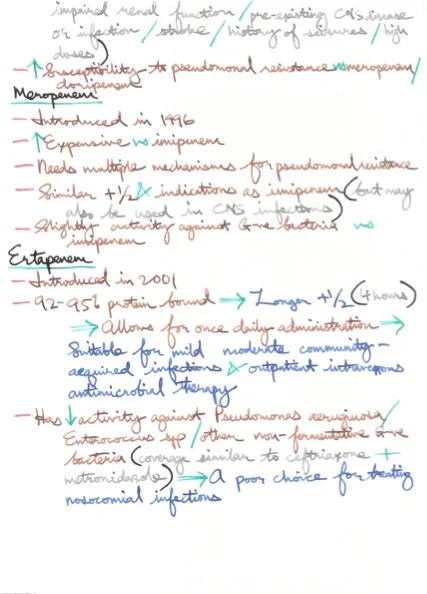 impaired renal function / pre-existing CNS disease
or infection / stroke / history of seizures / high
doses)
- ↑ Susceptibility to pseudomonal resistance vs meropenem /
doripenem
Meropenem
- Introduced in 1996
- ↑ Expensive vs imipenem
- Needs multiple mechanisms for pseudomonal resistance
- Similar t1/2 & indications as imipenem (but may
also be used in CNS infections)
- Slightly activity against G-ve bacteria vs
imipenem
Ertapenem
- Introduced in 2001
- 92-95% protein bound ⇒ Longer t1/2 (4 hours)
⇒ Allows for once daily administration ⇒
Suitable for mild moderate community-
acquired infections & outpatient intravenous
antimicrobial therapy
- Has ↓ activity against Pseudomonas aeruginosa /
Enterococcus sp / other non-fermentative G-ve
bacteria (coverage similar to ceftriaxone +
metronidazole) ⇒ A poor choice for treating
nosocomial infections